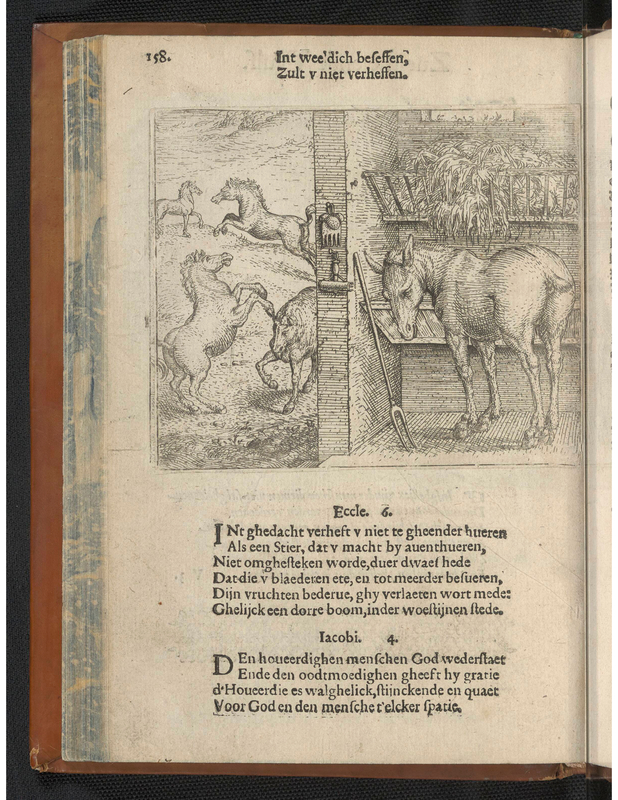 158.
Int wee'dich beseffen,
Zult v niet verheffen.
Eccle. 6.
INt ghedacht verheft v niet te gheender hueren
Als een Stier, dat v macht by auenthueren,
Niet omghesteken worde, duer dwaes hede
Dat die v blaederen ete, en tot meerder besueren,
Dijn vruchten bederue, ghy verlaeten wort mede:
Ghelijck een dorre boom, inder woestijnen stede.
Iacobi. 4.
DEn houeerdighen menschen God wederstaet
Ende den oodtmoedighen gheeft hy gratie
d'Houeerdie es walghelick, stijnckende en quaet
Voor God en den mensche t'elcker spatie.